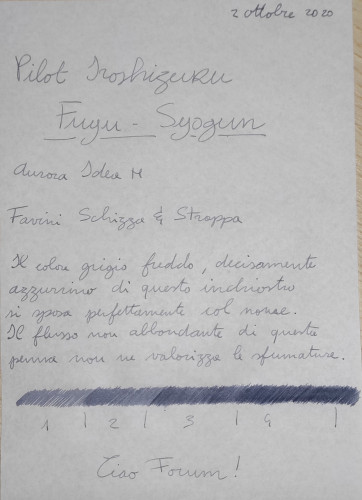 2 ottobre 2020
Pilot Iroshizuku
Fuyu - Syogun
Aurora Idea M
Favini Schizza & Strappa
Il colore grigio freddo, decisamente
azzurrino di questo inchiostro
si sposa perfettamente col nome.
Il flusso non abbondante di questa
penna non ne valorizza le sfumature.
1 | 2 | 3 | 4 |
Ciao Forum!